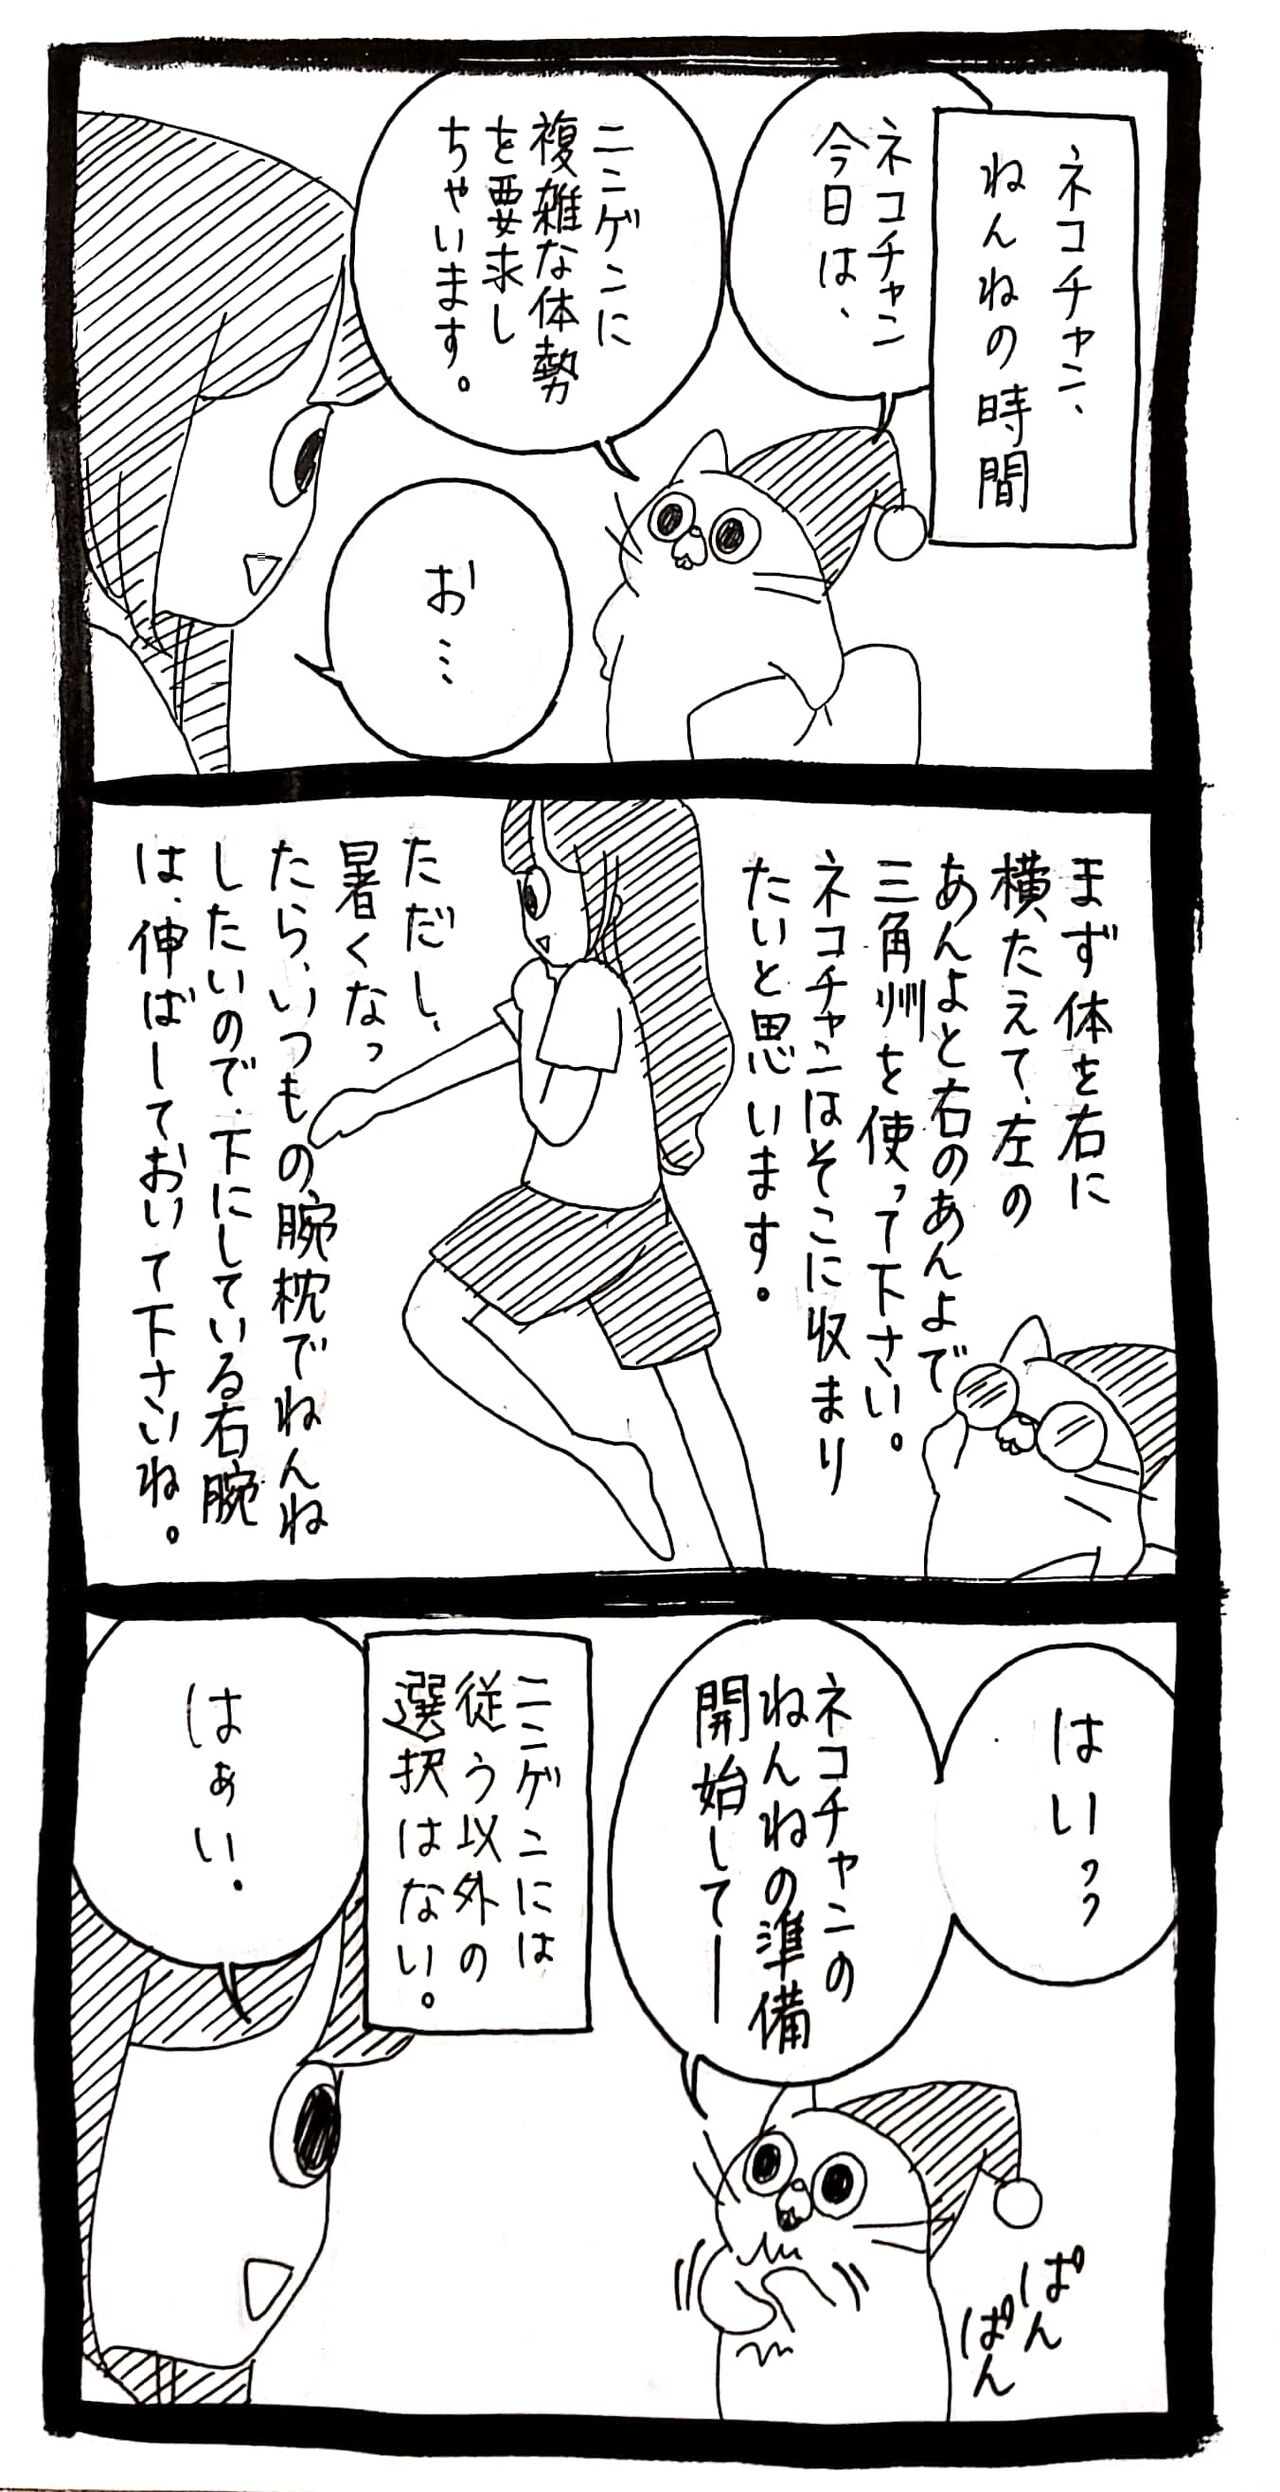 ネコチャン、
ねんねの時間
ネコチャン
今日は、
ニンゲンに
複雑な体勢
を要求し
ちゃいます。
お…
まず体を右に
横たえて、左の
あんよと右のあんよで
三角州を使って下さい。
ネコチャンはそこに収まり
たいと思います。
ただし、
暑くなっ
たら、いつもの腕枕でねんね
したいので、下にしている右腕
は、伸ばしておいて下さいね。
はいッッ
ネコチャンの
ねんねの準備
開始してー
ぱん
ぱん
ニンゲンには
従う以外の
選択はない。
はぁい。